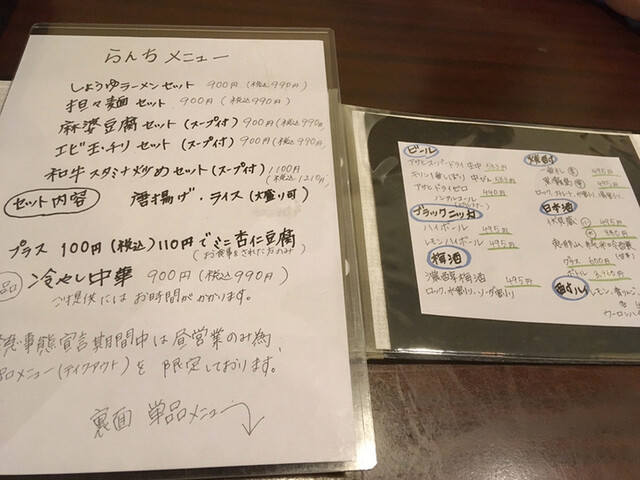 らんちメニュー
しょうゆラーメンセット 900円(税込990円)
担々麺 セット 900円 (税込990円)
麻婆豆腐セット(スープ付) 900円(税込990円)
エビ玉チリセット(スープ付) 900円(税込990円)
和牛スタミナ炒めセット(スープ付) 1,100円
(税込1210円)
セット内容 唐揚げ・ライス(大盛り可)
プラス 100円(税込)110円でミニ杏仁豆腐
(お食事をされた方のみ)
品 冷やし中華 900円(税込990円)
ご提供にはお時間がかかります。
急事態宣言期間中は昼営業のみ為、
品メニュー(テイクアウト)を 限定しております。
裏面 単品メニュー
ビール
アサヒスーパードライ 生中 583円
キリン一番しぼり 中びん 583円
アサヒドライゼロ 440円
ノンアルコール
ブラックニッカ
ハイボール 495円
レモンハイボール 495円
梅酒
濃醇梅酒 495円
ロック、水割り、ソーダ割り
焼酎
495円
495円
ロック、
日本酒
495円
990円
グラス 600円
ボトル
レモン、
ウーロンハイ